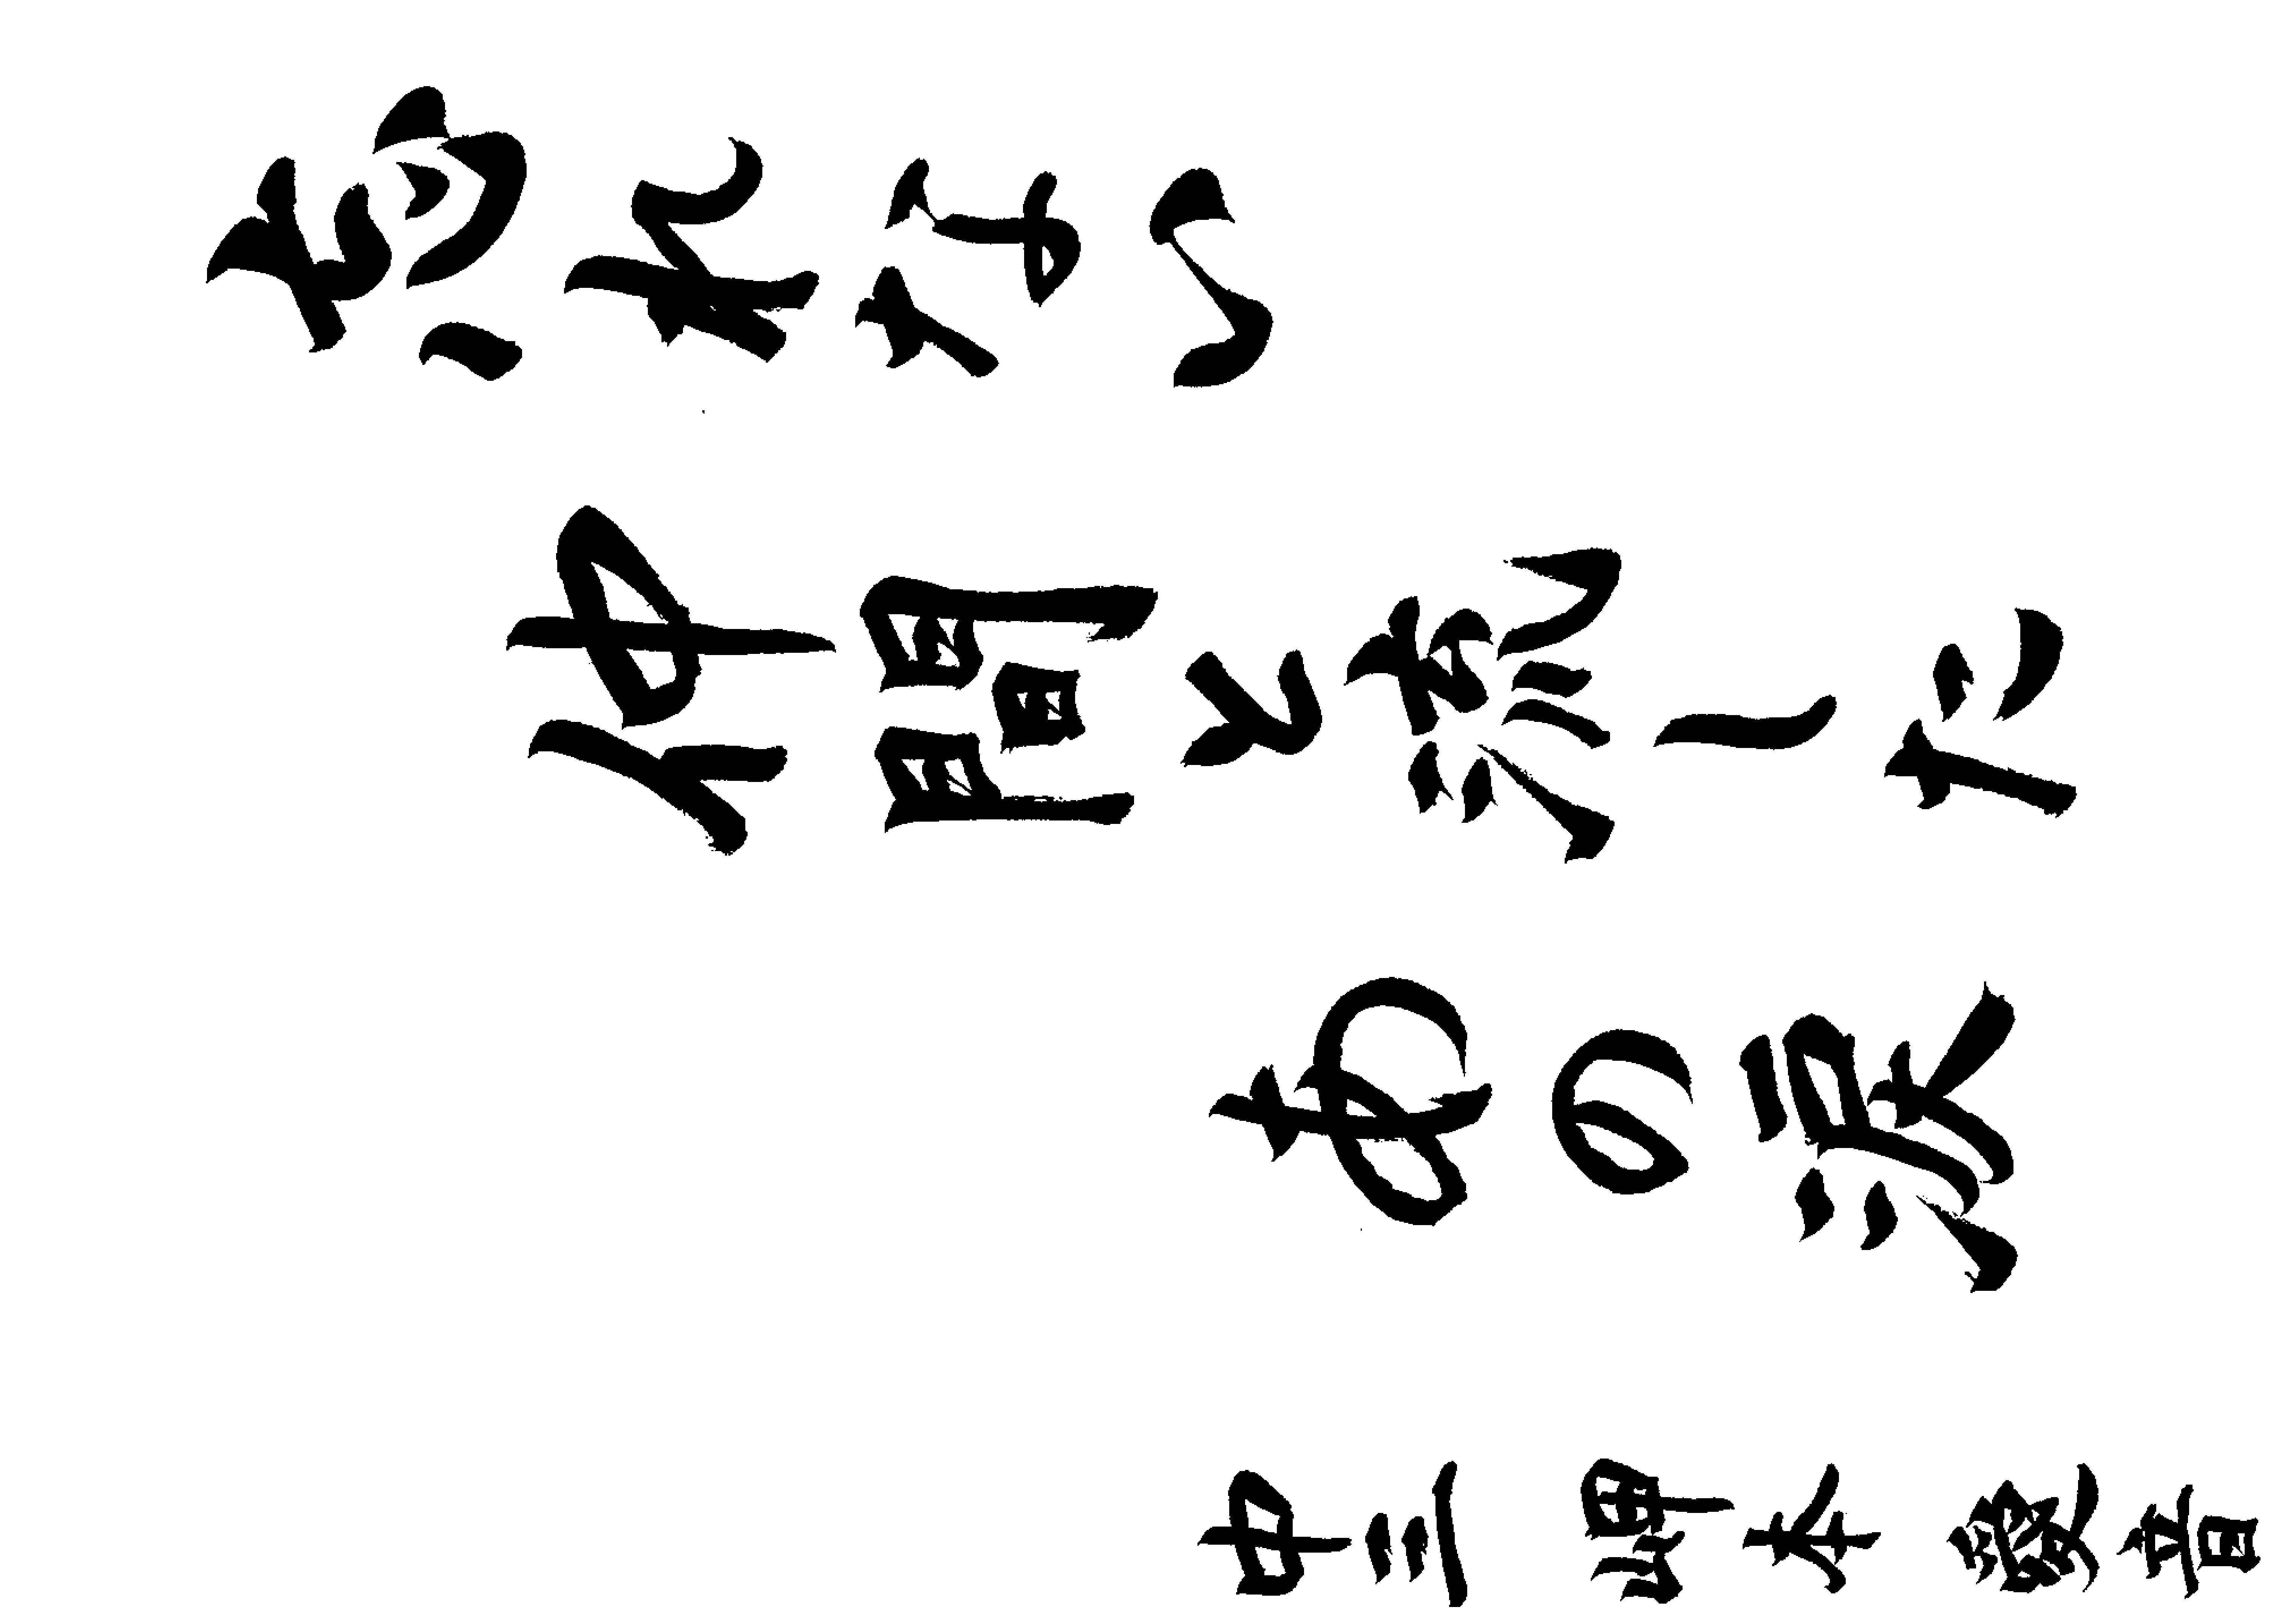 忘れない
仲間と流した
あの涙
中三 本 愛音